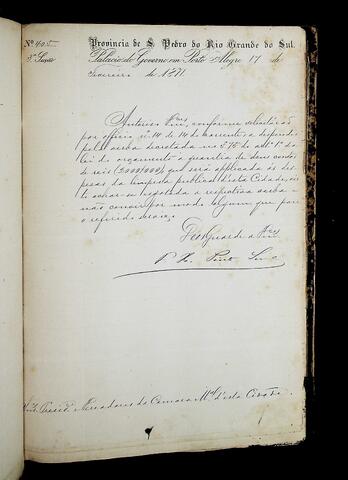 Nº 405
Provincia de S. Pedro do Rio Grande do Sul.
3ª Secção
Palacio do Governo em Porto Alegre 17 de
Fevereiro de 1871
Autoriso Vmces, conforme solicitárão
por officio nº 14 de 14 do corrente, a despender
pela verba decretada no § 15 do artº 1º da
lei do orçamento a quantia de dous contos
de reis (2:000$000), que será applicada ás des
pesas da limpesa publica desta Cidade, vis
to achar-se exgotada a respectiva verba e
não convir por modo algum que pare
o referido serviço.
Deos Guarde a Vmces
Snrs. Presidte e Vereadores da Camara Mal d'esta Cidade.